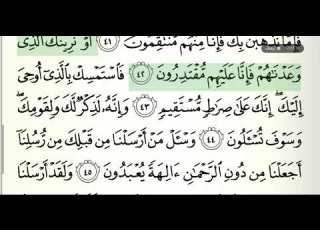 فَإِمَّا نَذْهَبَنَّ بِكَ فَإِنَّا مِنْهُم مُّنتَقِمُونَ ٤١ أَوْ نُرِيَنَّكَ ٱلَّذِى
وَعَدْنَٰهُمْ فَإِنَّا عَلَيْهِم مُّقْتَدِرُونَ ٤٢ فَٱسْتَمْسِكْ بِٱلَّذِىٓ أُوحِىَ
إِلَيْكَ ۖ إِنَّكَ عَلَىٰ صِرَٰطٍ مُّسْتَقِيمٍ ٤٣ وَإِنَّهُۥ لَذِكْرٌ لَّكَ وَلِقَوْمِكَ ۖ
وَسَوْفَ تُسْـَٔلُونَ ٤٤ وَسْـَٔلْ مَنْ أَرْسَلْنَا مِن قَبْلِكَ مِن رُّسُلِنَآ
أَجَعَلْنَا مِن دُونِ ٱلرَّحْمَٰنِ ءَالِهَةً يُعْبَدُونَ ٤٥ وَلَقَدْ أَرْسَلْنَا